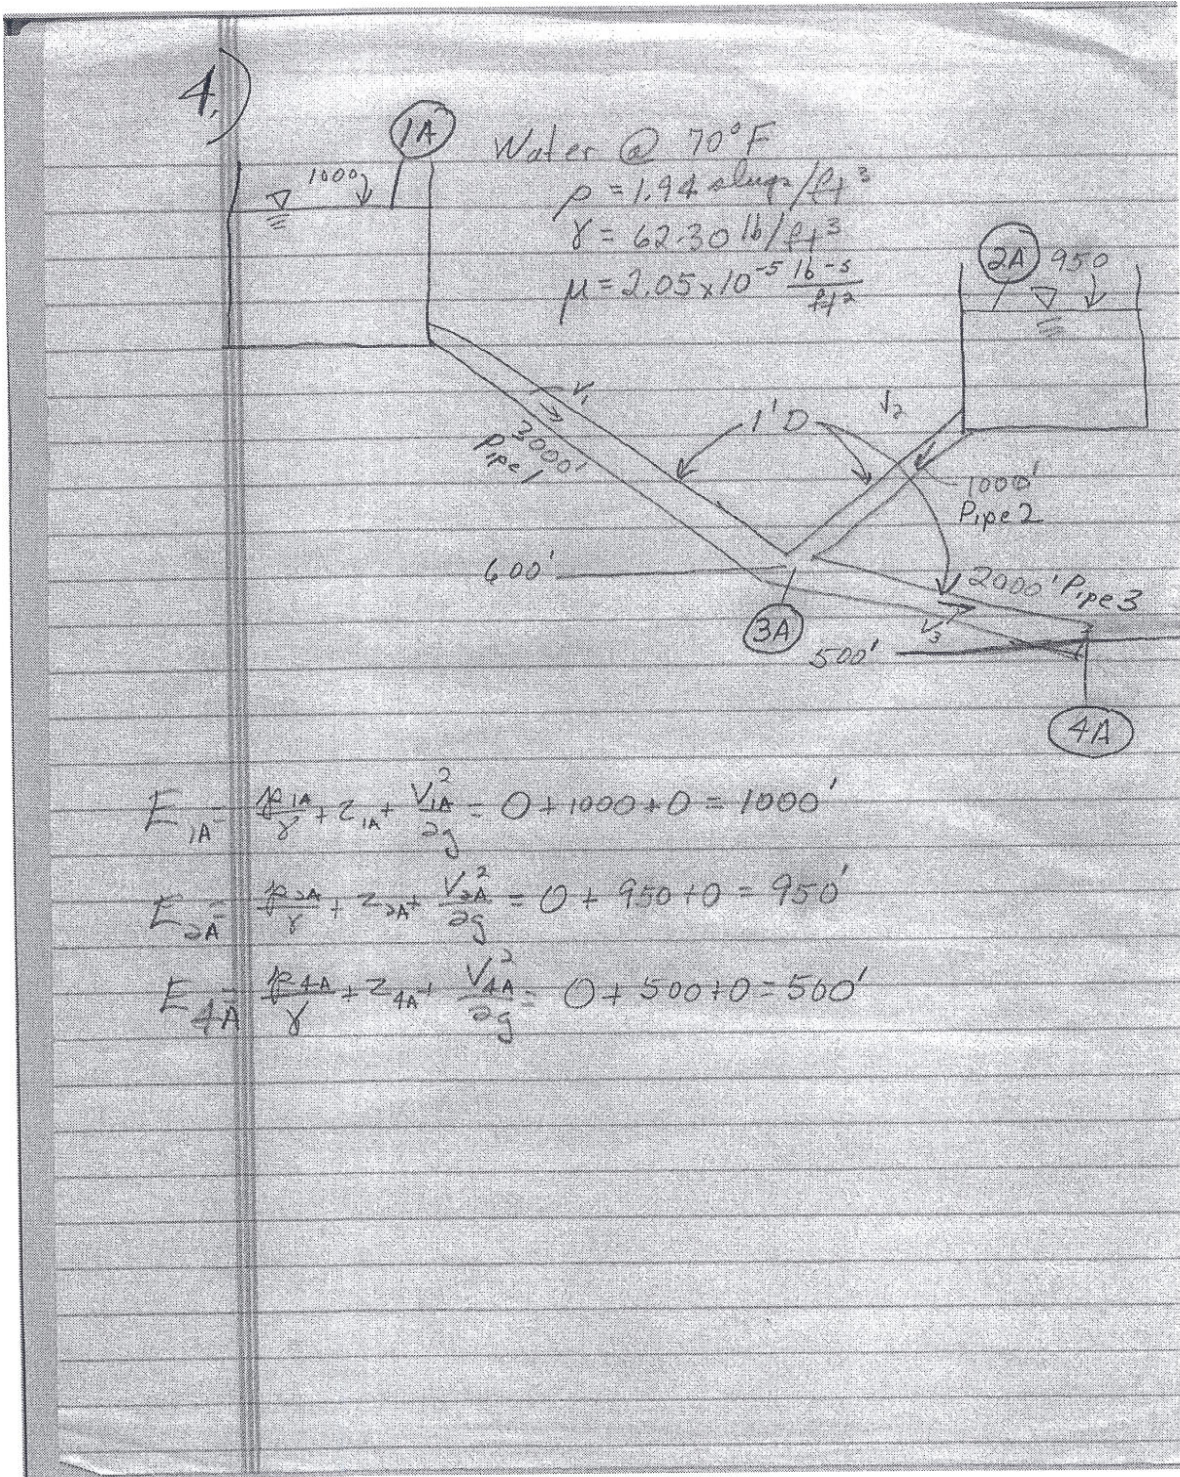 4.)
1A
Water @ 70°F
1000
ρ = 1.94 slugs/ft³
γ = 62.30 lb/ft³
μ = 2.05 x 10⁻⁵ lb-s/ft²
2A 950
V₁
1'D
V₂
3000'
Pipe 1
1000'
Pipe 2
600'
2000' Pipe 3
3A
V₃
500'
4A
E₁A = p₁A/γ + z₁A + V₁A²/2g = 0 + 1000 + 0 = 1000'
E₂A = p₂A/γ + z₂A + V₂A²/2g = 0 + 950 + 0 = 950'
E₄A = p₄A/γ + z₄A + V₄A²/2g = 0 + 500 + 0 = 500'